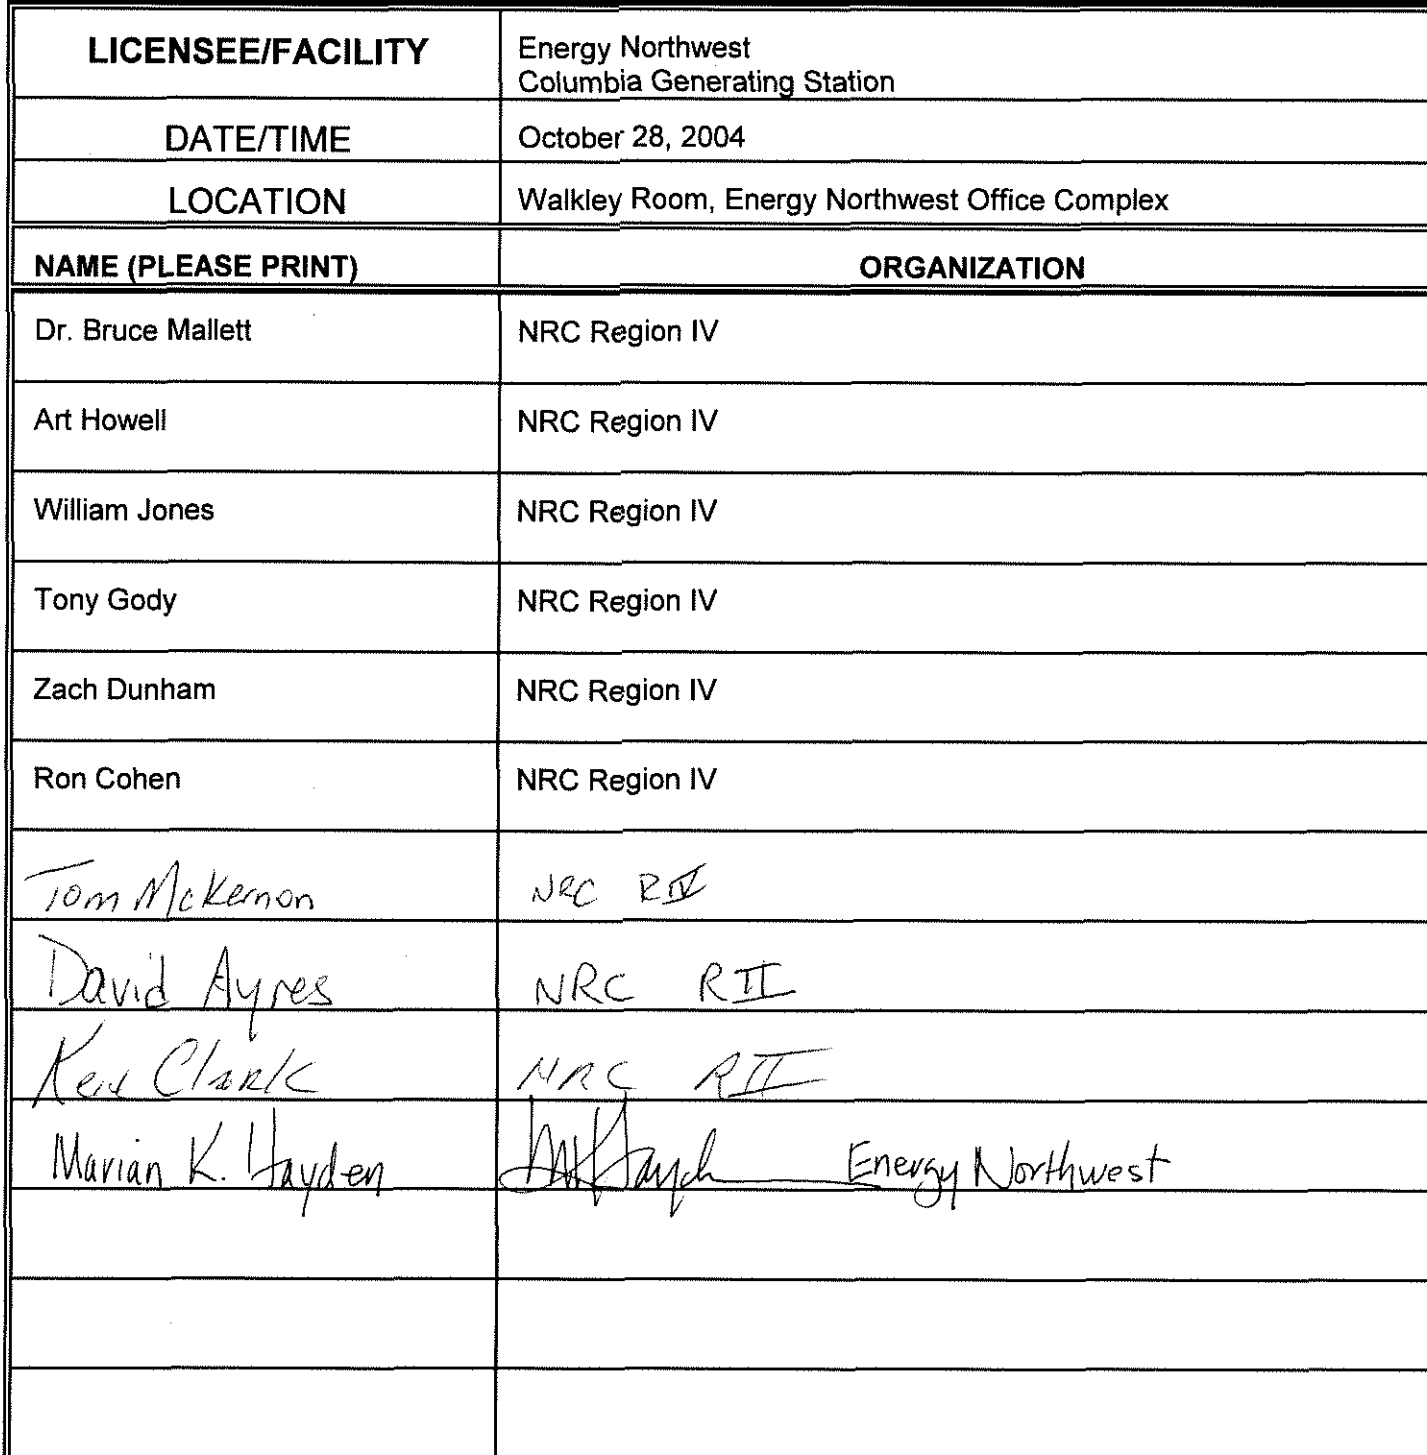 LICENSEE/FACILITY Energy Northwest
Columbia Generating Station
DATE/TIME October 28, 2004
LOCATION Walkley Room, Energy Northwest Office Complex
NAME (PLEASE PRINT) ORGANIZATION
Dr. Bruce Mallett NRC Region IV
Art Howell NRC Region IV
William Jones NRC Region IV
Tony Gody NRC Region IV
Zach Dunham NRC Region IV
Ron Cohen NRC Region IV
Tom McKernon NRC RIV
David Ayres NRC RII
Ken Clark NRC RII
Marian K. Hayden Energy Northwest